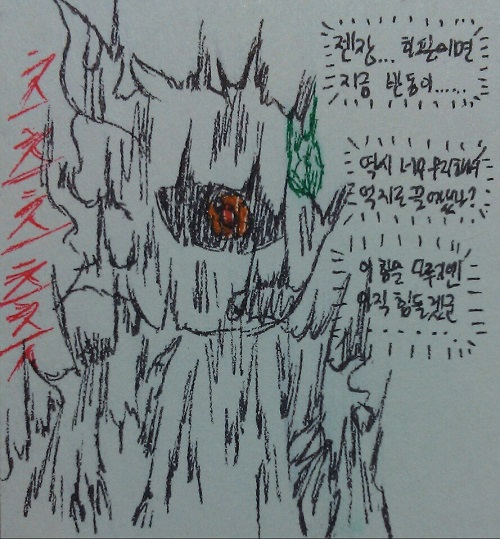 젠장... 하필이면
지금 반동이......
역시 너무 무리해서
억지로 끌어냈나?
이 힘을 다루기엔
아직 힘들겠군